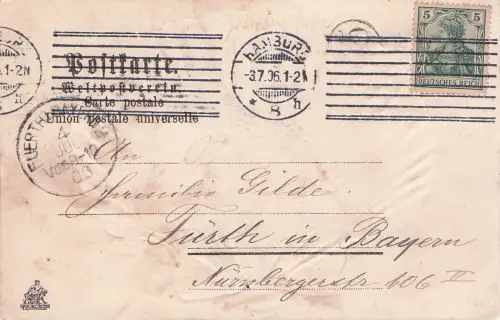 5
DEUTSCHES REICH
HAMBURG
-3.7.06.1-2N
* 8 h
Postkarte.
Weltpostverein.
Carte postale
Union postale universelle
FUERTH
4
JUL
06
An
Familie Gilde.
Fürth in Bayern
Nürnbergerstr 106 II